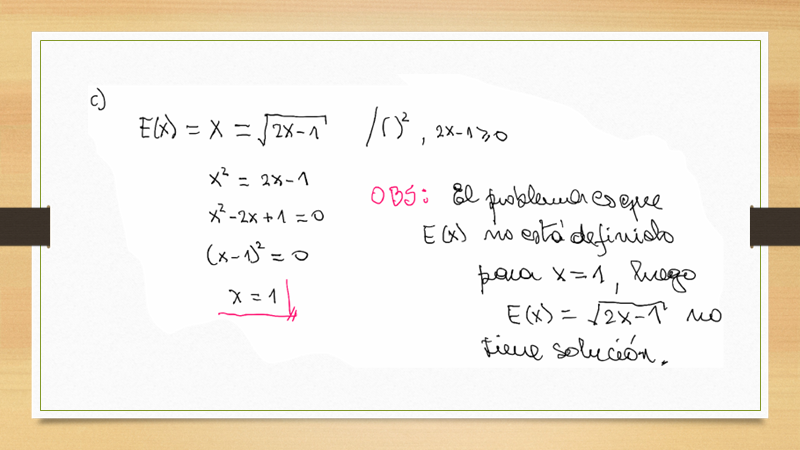 c)
E(x) = x = √2x-1 /( )² , 2x-1 ≥ 0
x² = 2x-1
x²-2x+1 = 0
(x-1)² = 0
x = 1
OBS: El problema es que
E(x) no está definido
para x=1, luego
E(x) = √2x-1 no
tiene solución.